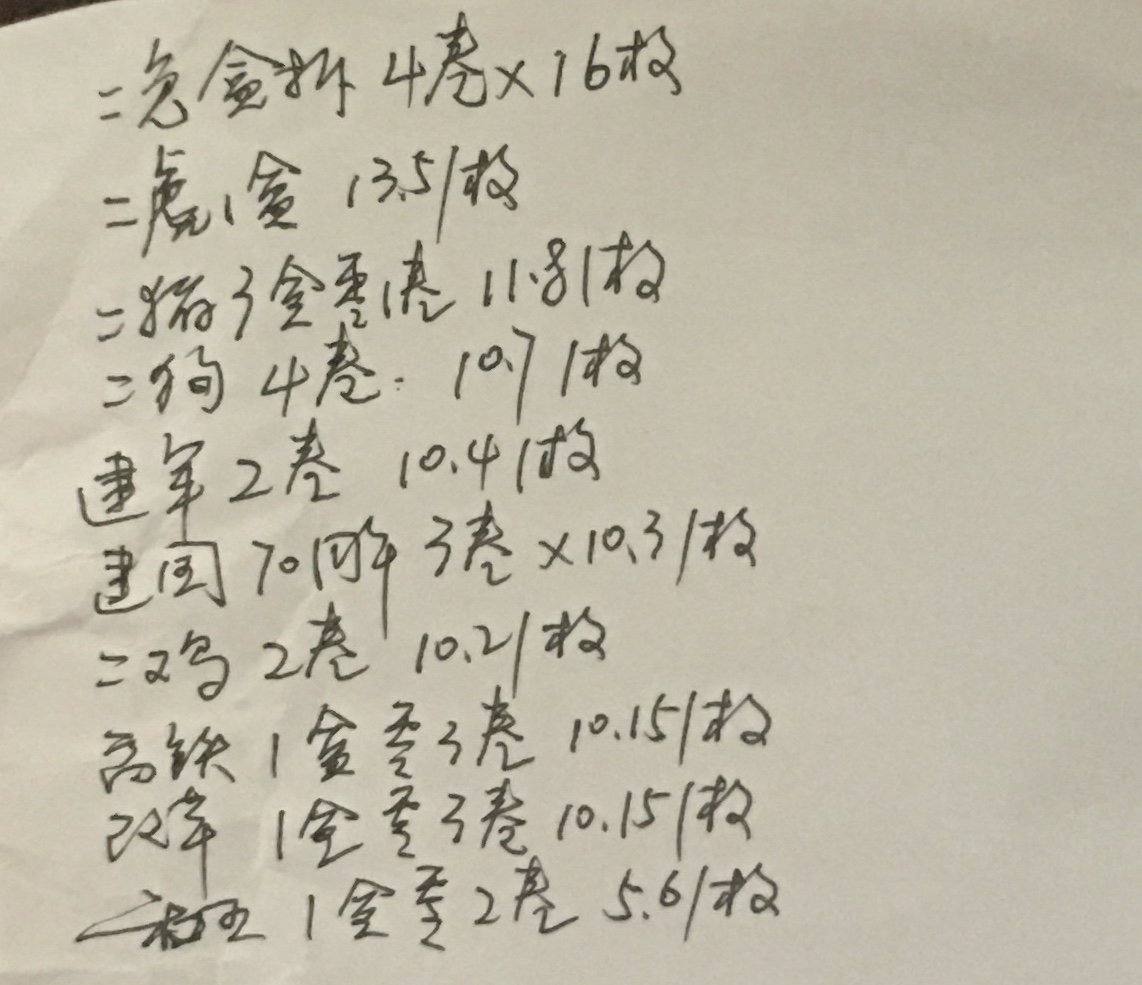 二兔盒拆 4卷×16枚
二虎1盒 13.5/枚
二猪3盒零1卷 11.8/枚
二狗 4卷. 10.7/枚
建军2卷 10.4/枚
建国70周年 3卷×10.3/枚
二鸡 2卷 10.2/枚
高铁 1盒零3卷 10.15/枚
改革 1盒零3卷 10.15/枚
1盒零2卷 5.6/枚